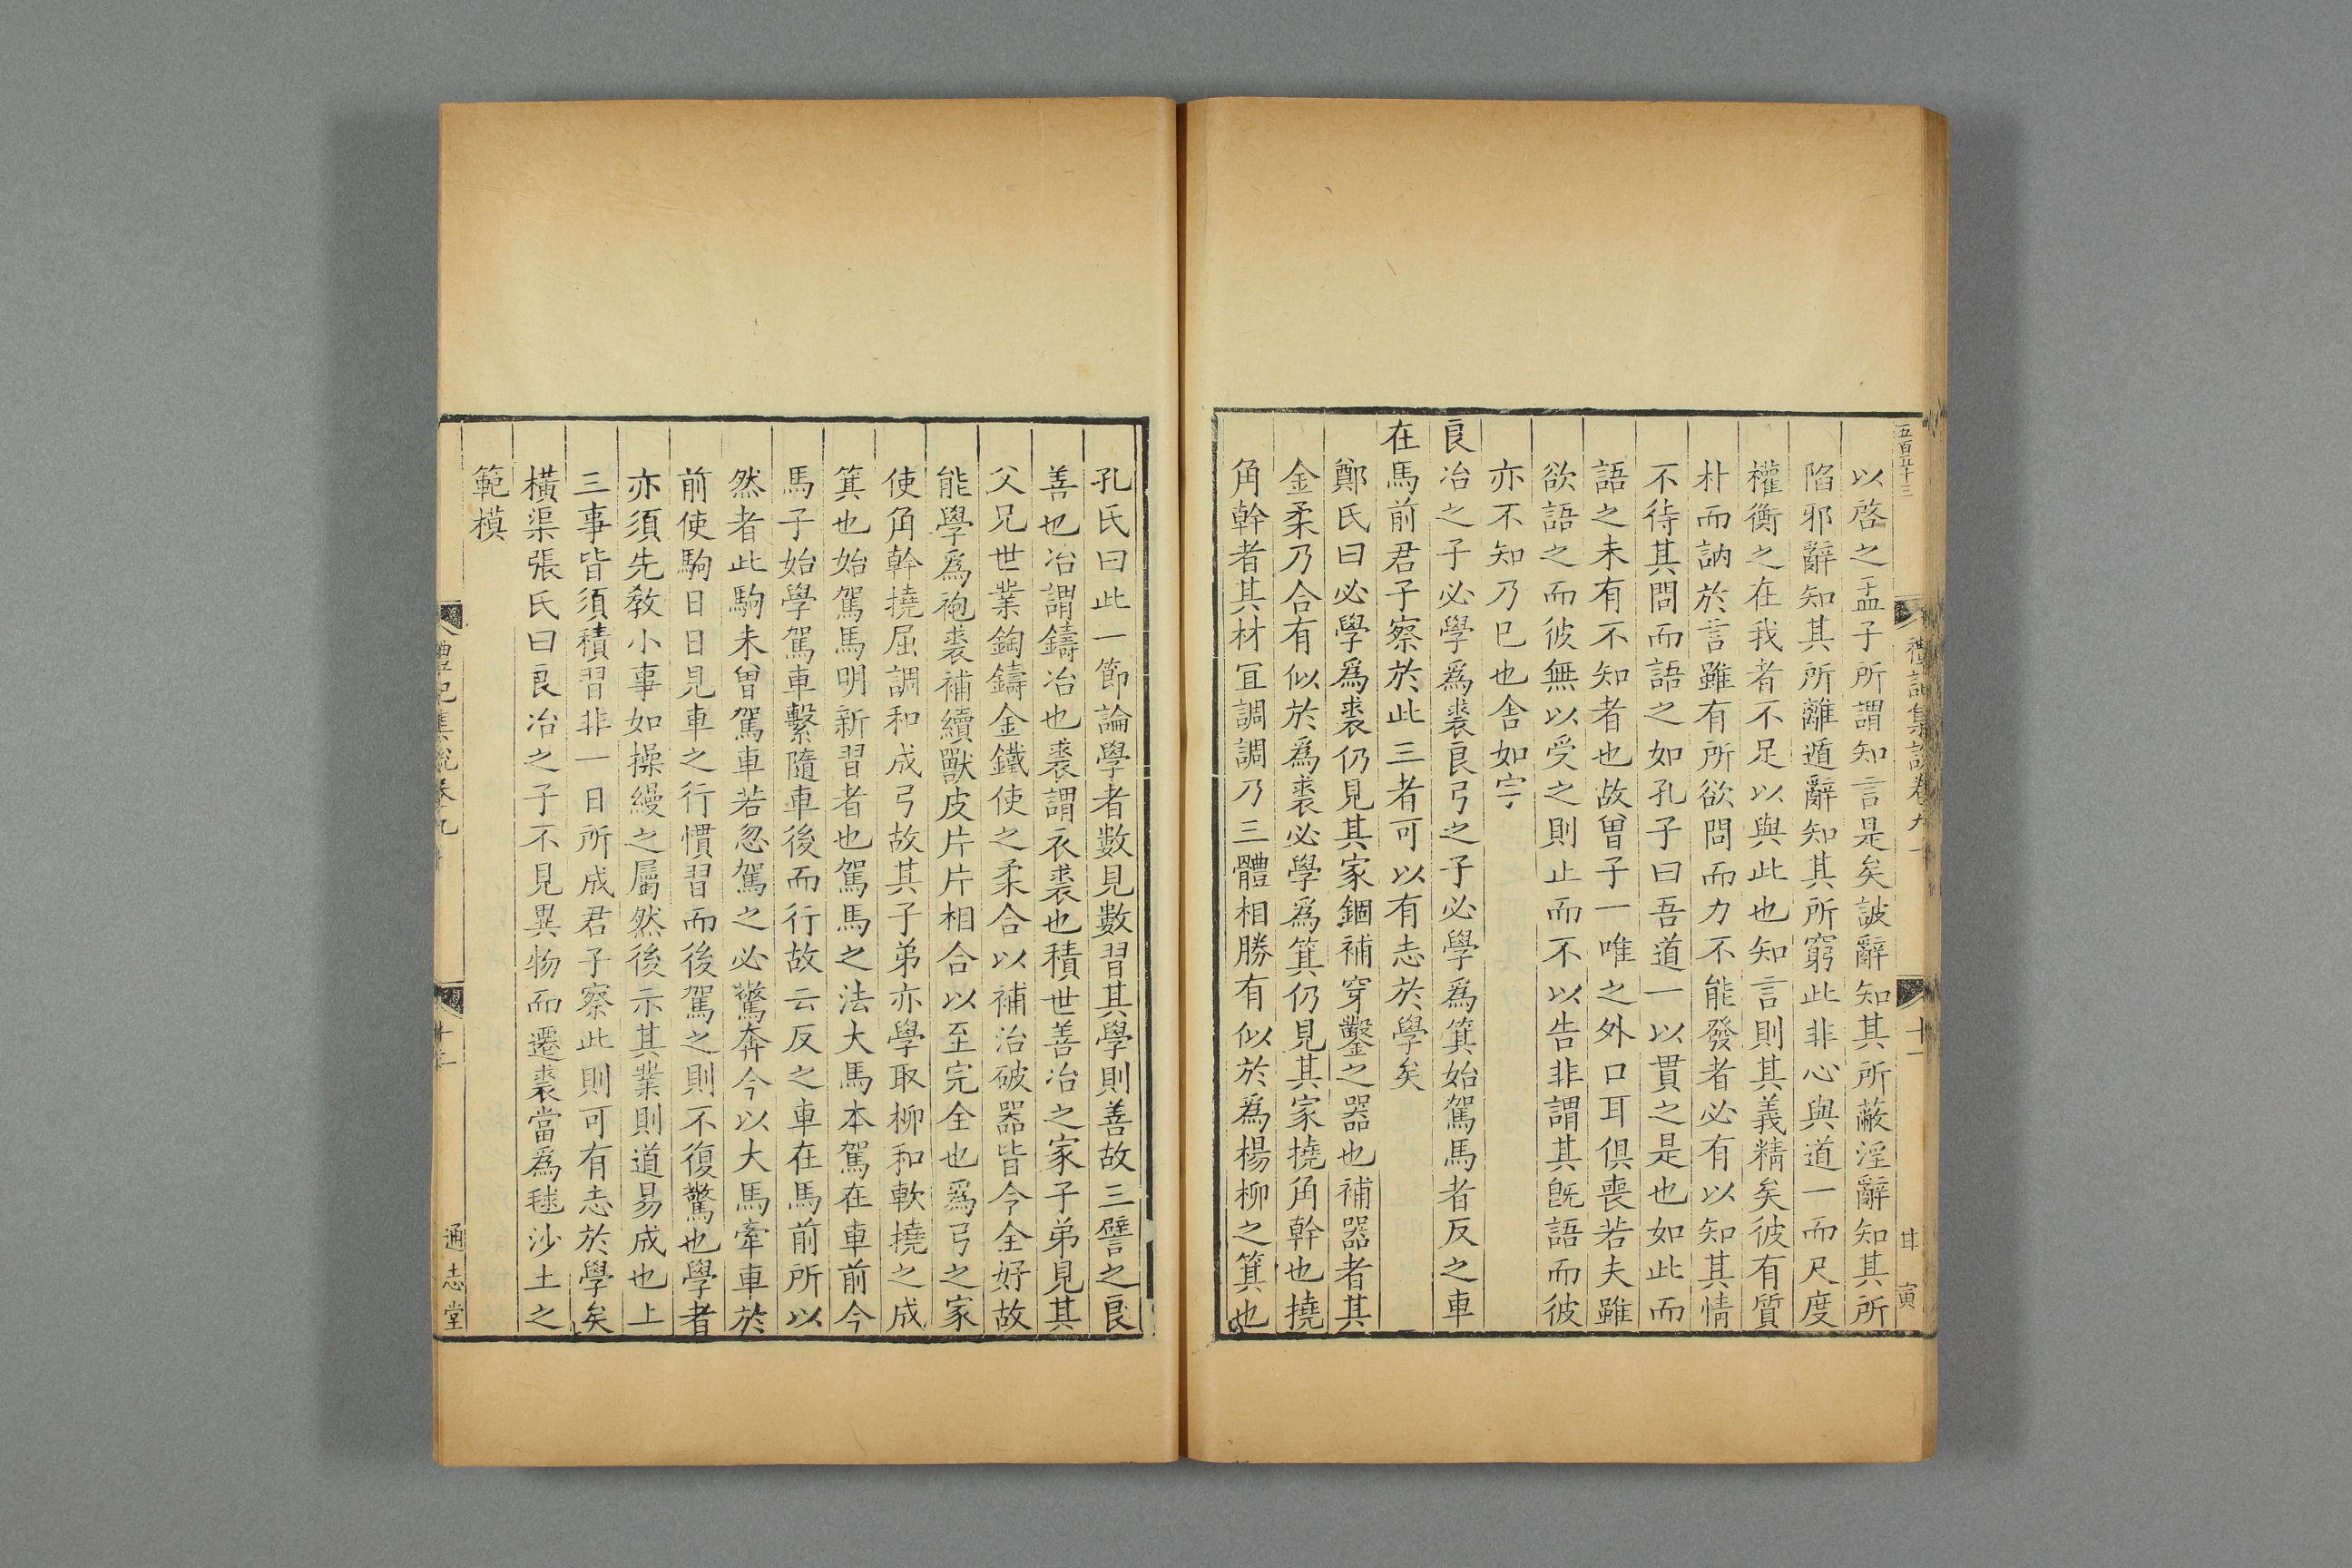 五百五十三
禮記集說卷九
十一
甘
寅
以啓之孟子所謂知言是矣詖辭知其所蔽淫辭知其所
陷邪辭知其所離遁辭知其所窮此非心與道一而尺度
權衡之在我者不足以與此也知言則其義精矣彼有質
朴而訥於言雖有所欲問而力不能發者必有以知其情
不待其問而語之如孔子曰吾道一以貫之是也如此而
語之未有不知者也故曾子一唯之外口耳俱喪若夫雖
欲語之而彼無以受之則止而不以告非謂其旣語而彼
亦不知乃巳也舍如字
良冶之子必學爲裘良弓之子必學爲箕始駕馬者反之車
在馬前君子察於此三者可以有志於學矣
鄭氏曰必學爲裘仍見其家錮補穿鑿之器也補器者其
金柔乃合有似於爲裘必學爲箕仍見其家撓角幹也撓
角幹者其材冝調調乃三體相勝有似於爲楊柳之箕也
孔氏曰此一節論學者數見數習其學則善故三譬之良
善也冶謂鑄冶也裘謂衣裘也積世善冶之家子弟見其
父兄世業鉤鑄金鐵使之柔合以補治破器皆令全好故
能學爲袍裘補續獸皮片片相合以至完全也爲弓之家
使角幹撓屈調和成弓故其子弟亦學取柳和軟撓之成
箕也始駕馬明新習者也駕馬之法大馬本駕在車前今
馬子始學駕車繫隨車後而行故云反之車在馬前所以
然者此駒未曾駕車若忽駕之必驚奔今以大馬牽車於
前使駒日日見車之行慣習而後駕之則不復驚也學者
亦須先敎小事如操縵之屬然後示其業則道易成也上
三事皆須積習非一日所成君子察此則可有志於學矣
橫渠張氏曰良冶之子不見異物而遷裘當爲毬沙土之
範模
禮記集說卷九
通志堂